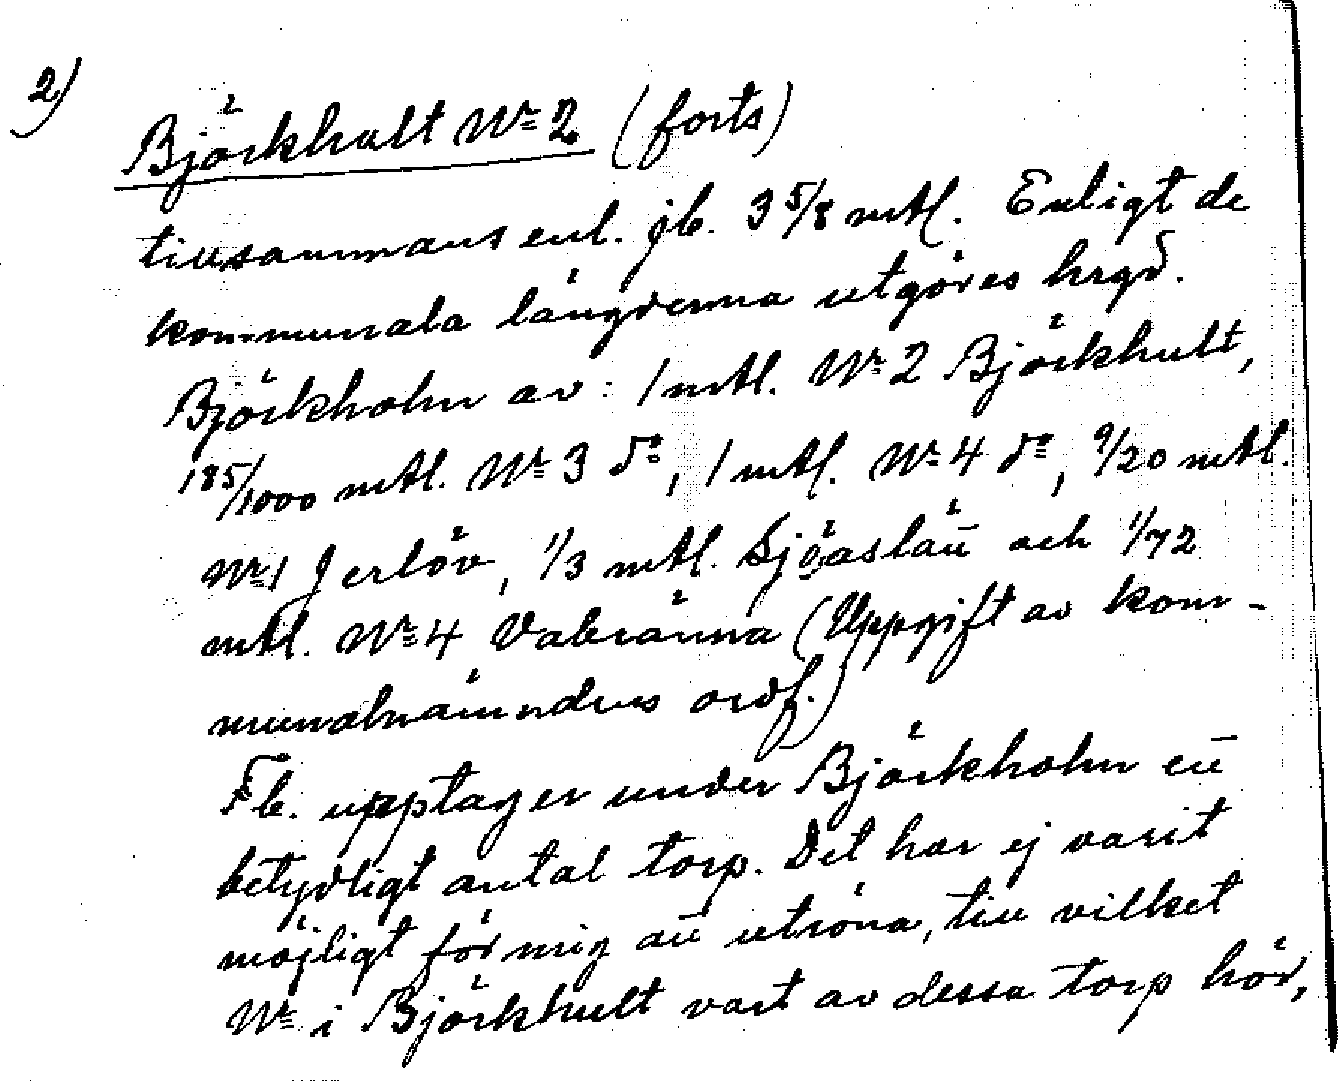 2)
Björkhult Nr 2 (forts)
tillsammans enl. jb. 3 5/8 mtl. Enligt de
kommunala längderna utgöres hrgd.
Björkholm av: 1 mtl. Nr 2 Björkhult,
185/1000 mtl. Nr 3 do, 1 mtl. Nr 4 do, 9/20 mtl.
Nr 1 Jerlöv, 1/3 mtl. Sjöaslätt och 1/72
mtl. Nr 4 Vabränna (Uppgift av kom-
munalnämndens ordf.)
Fb. upptager under Björkholm ett
betydligt antal torp. Det har ej varit
möjligt för mig att utröna, till vilket
Nr i Björkhult vart av dessa torp hör,